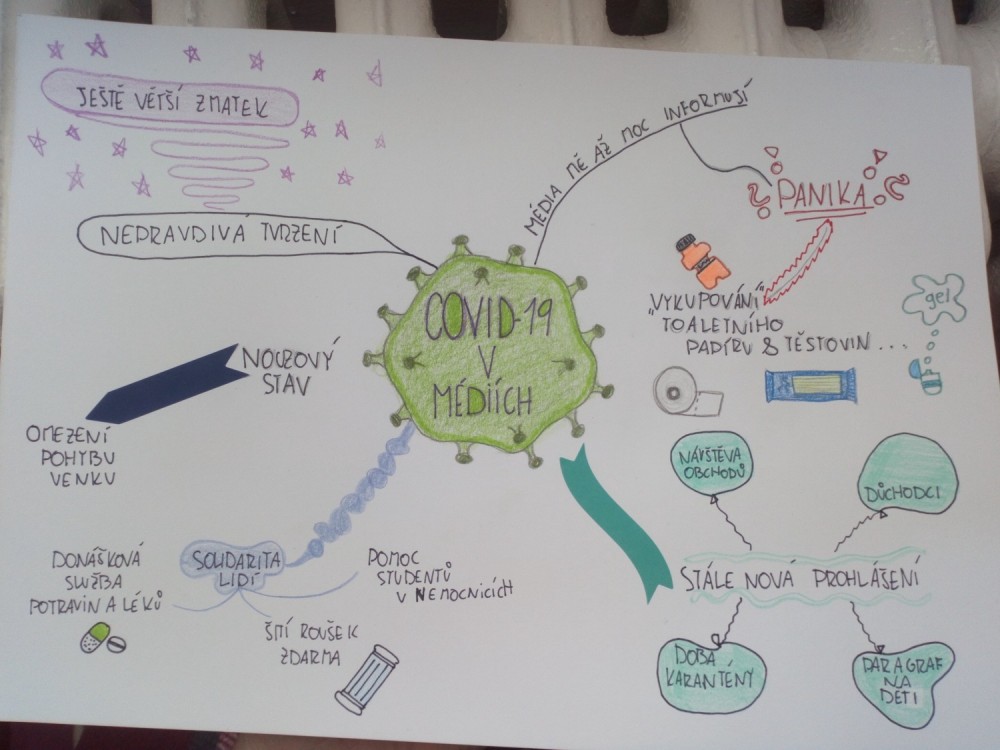 JEŠTĚ VĚTŠÍ ZMATEK
NEPRAVDIVÁ TVRZENÍ
COVID-19
V
MÉDIÍCH
MÉDIA MĚ AŽ MOC INFORMUJÍ
PANIKA
„VYKUPOVÁNÍ"
TOALETNÍHO
PAPÍRU & TĚSTOVIN...
gel
NOUZOVÝ
STAV
OMEZENÍ
POHYBU
VENKU
SOLIDARITA
LIDÍ
DONÁŠKOVÁ
SLUŽBA
POTRAVIN A LÉKŮ
ŠITÍ ROUŠEK
ZDARMA
POMOC
STUDENTŮ
V NEMOCNICÍCH
NÁVŠTĚVA
OBCHODŮ
DŮCHODCI
STÁLE NOVÁ PROHLÁŠENÍ
DOBA
KARANTÉNY
PARAGRAF
NA
DĚTI